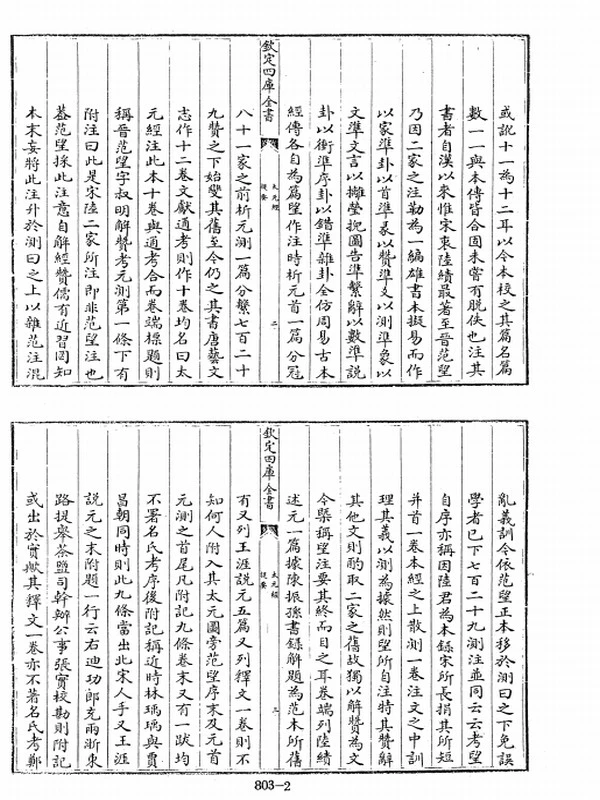 或訛十一為十二耳以今本校之其篇名篇
數一一與本傳皆合固未嘗有脫佚也注其
書者自漢以來惟宋衷陸績最著至晉范望
乃因二家之注勒為一編雄書本擬易而作
以家準卦以首準彖以贊準爻以測準象以
文準文言以攡瑩掜圖告準繫辭以數準說
卦以衝準序卦以錯準雜卦全仿周易古本
經傳各自為篇望作注時析元首一篇分冠
欽定四庫全書
太元經
提要
二
八十一家之前析元測一篇分繫七百二十
九贊之下始變其舊至今仍之其書唐藝文
志作十二卷文獻通考則作十卷均名曰太
元經注此本十卷與通考合而卷端標題則
稱晉范望字叔明解贊考元測第一條下有
附注曰此是宋陸二家所注即非范望注也
蓋范望採此注意自解經贊儒有近習罔知
本末妄將此注升於測曰之上以雜范注混
亂義訓今依范望正本移於測曰之下免誤
學者已下七百二十九測注並同云云考望
自序亦稱因陸君為本錄宋所長捐其所短
并首一卷本經之上散測一卷注文之中訓
理其義以測為據然則望所自注特其贊辭
其他文則酌取二家之舊故獨以解贊為文
今槩稱望注要其終而目之耳卷端列陸績
述元一篇據陳振孫書錄解題為范本所舊
欽定四庫全書
太元經
提要
三
有又列王涯說元五篇又列釋文一卷則不
知何人附入其太元圖旁范望序末及元首
元測之首尾凡附記九條卷末又有一跋均
不署名氏考序後附記稱近時林瑀瑀與賈
昌朝同時則此九條當出北宋人手又王涯
說元之末附題一行云右迪功郎充兩浙東
路提舉茶鹽司幹辦公事張寔校勘則附記
或出於寔歟其釋文一卷亦不著名氏考鄭
803-2